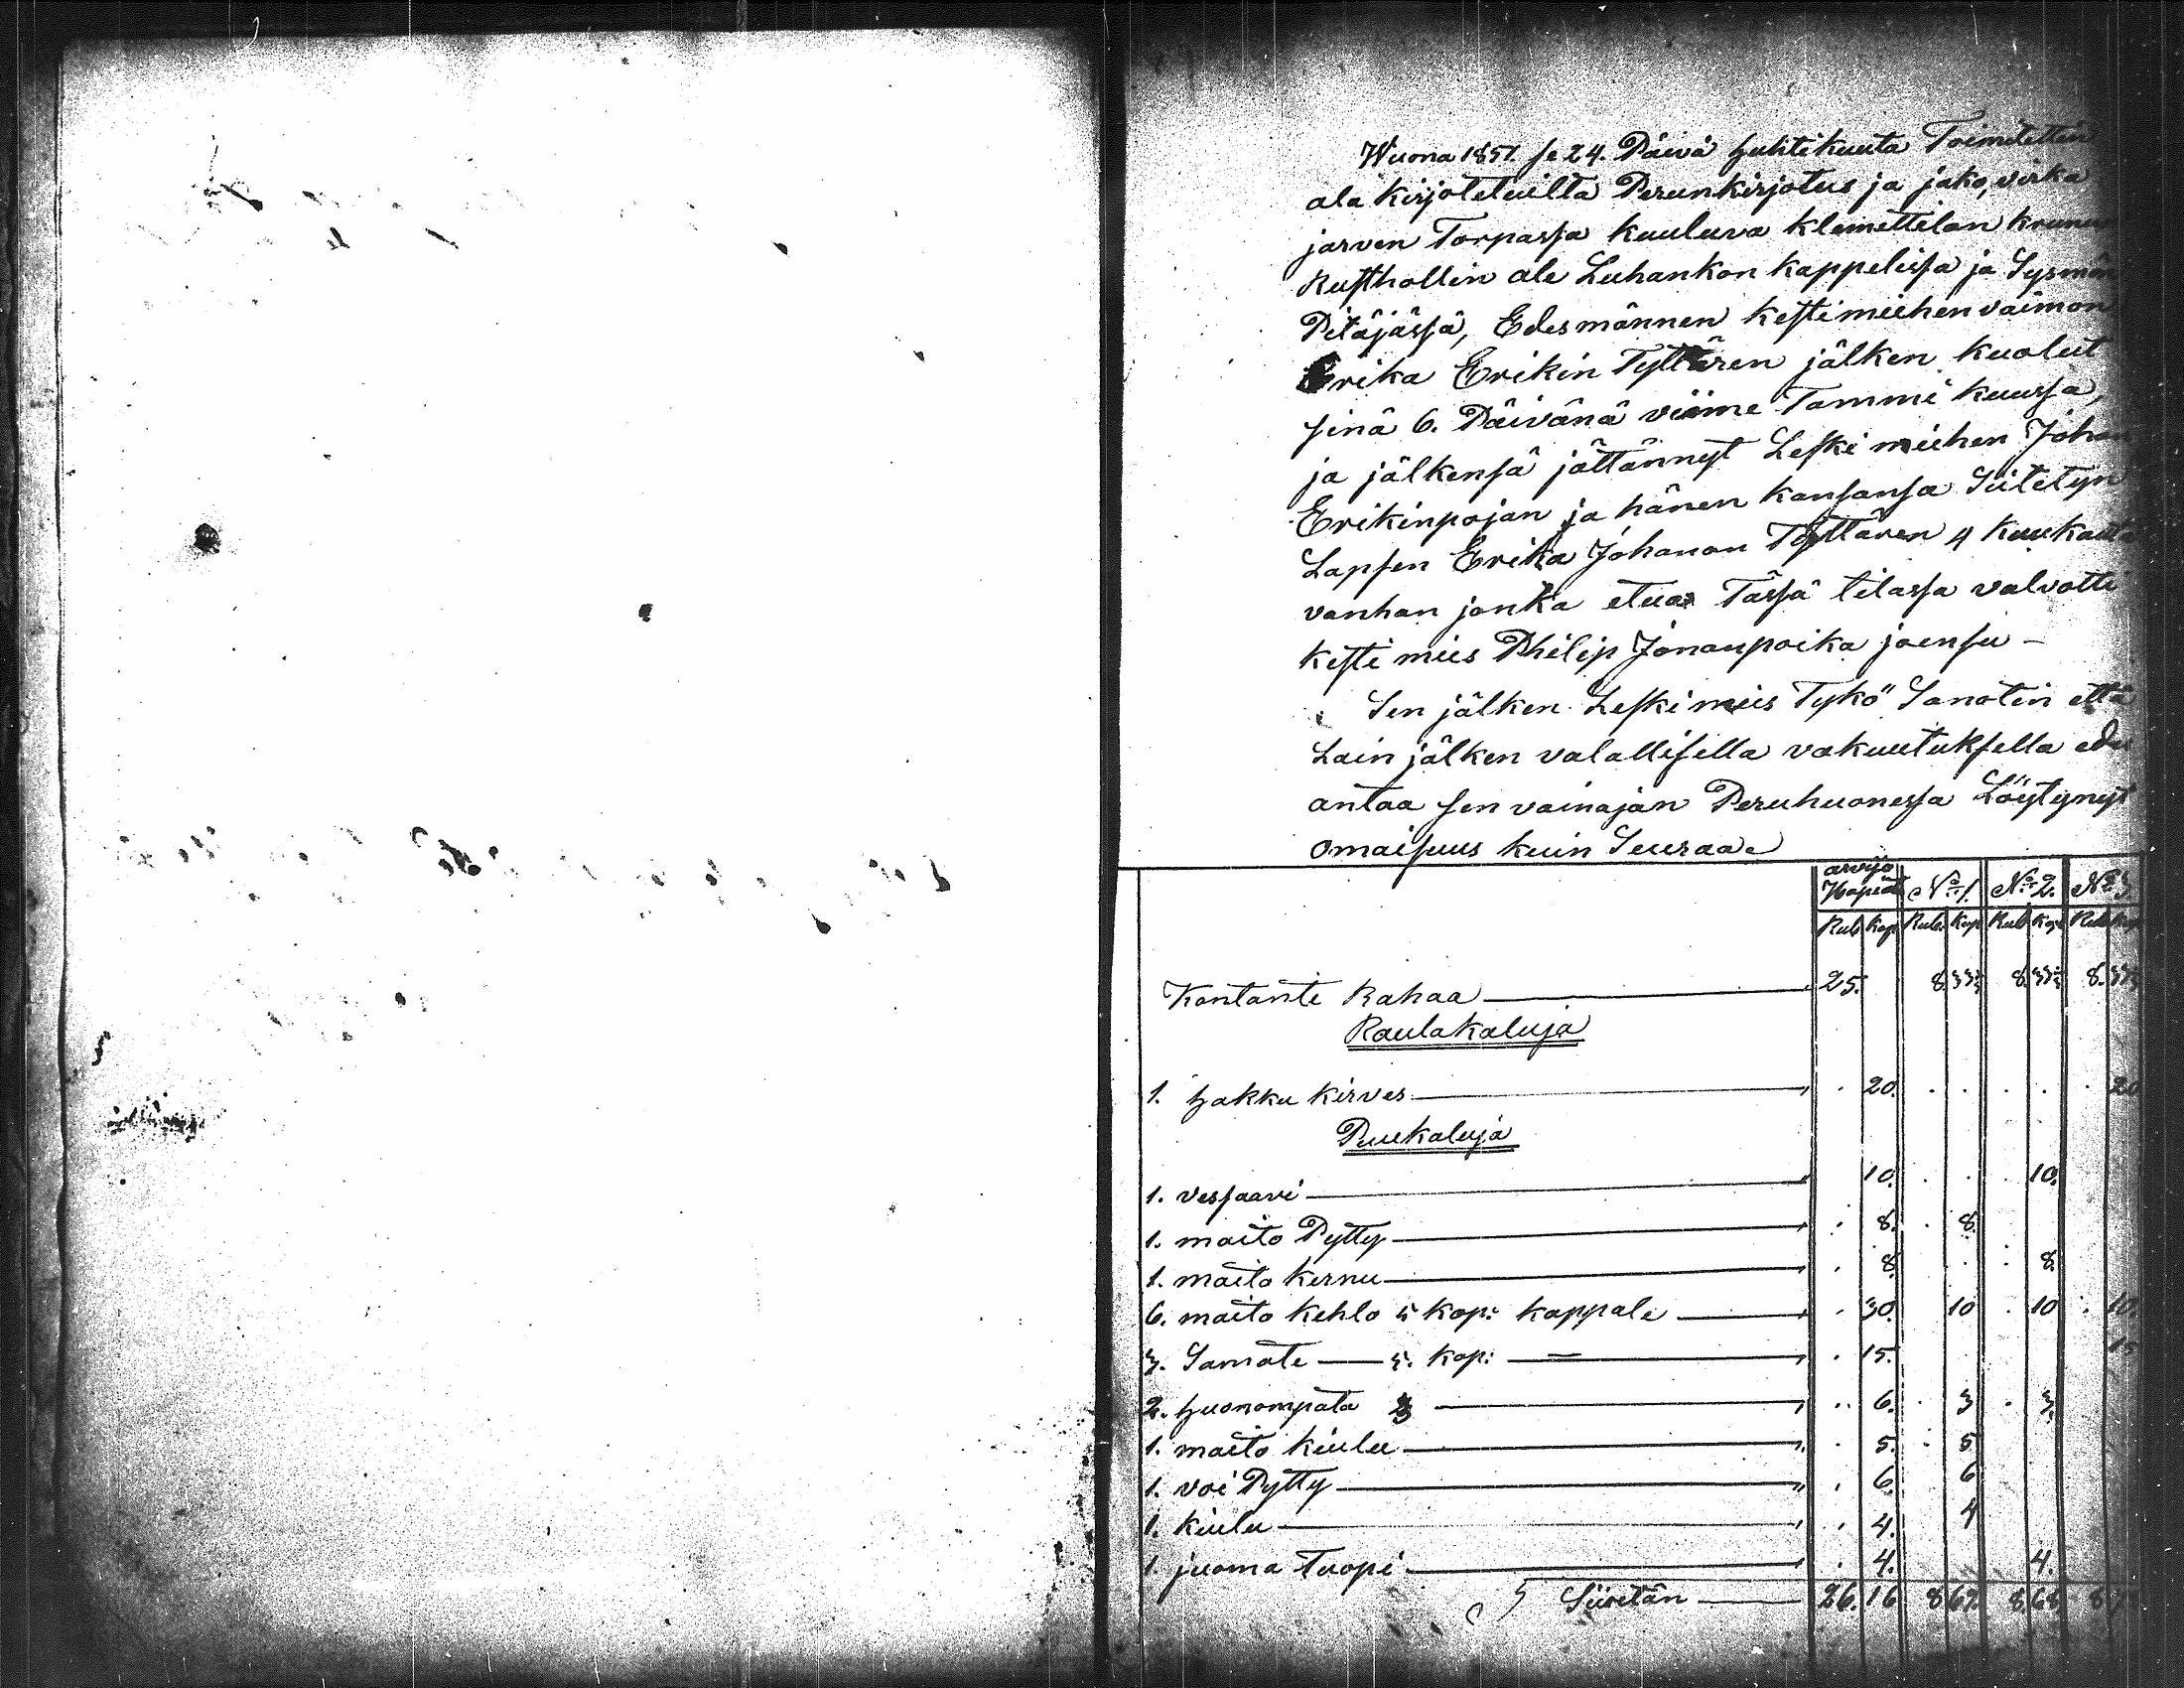 Wuona 1851. se 24. Päivä huhtikuuta Toimitettin
ala kirjoteluilta Perunkirjotus ja jako, virka
jarven Torpassa kuuluva Klemettilan krunun
Rusthollin ale Luhankon kappelissa ja Sysmän
Pitäjässä, Edesmännen kestimiehen vaimon
Erika Erikin Tyttären jälken kuolut
sinä 6. Päivänä viime Tammi kuussa,
ja jälkensä jättännyt Leski miehen Johan
Erikinpojan ja hänen kansansa Siitetyn
Lapsen Erika Johanan Tyttären 4 kuukautta
vanhan jonka etua Tässä tilassa valvotti
kesti mies Philip Jonanpoika joensu -
Sen jälken Leski mies Tykö Sanotin että
Lain jälken valallisella vakuutuksella edes
antaa sen vainajan Peruhuonessa Löytynyt
omaisuus kuin Seuraa
arvijo Hopiat No 1. No 2. No 3.
Rub Kop Rub. Kop Rub Kop Rub Kop
Kontante Rahaa 25. 8 33⅓ 8 33⅓ 8. 33⅓
Raulakaluja
1. hakku kirves " . 20. . . . . . 20
Puukaluja
1. vessaavi " 10. . . . 10.
1. maito Pytty " . 8. . 8.
1. maito kernu " . 8 . . . 8.
6. maito kehlo 5 kop: kappale " . 30. 10 . 10 . 10.
3. Samote 5. kop: — " . 15. 15
2. huonompata 3 " . 6. . 3 . 3.
1. maito kiulu " . 5. . 5
1. voi Pytty " . 6. 6
1. kiulu " . 4. 4
1. juoma Tuopi . 4. 4.
Siiretän 26. 16 8 67. 8. 68 8